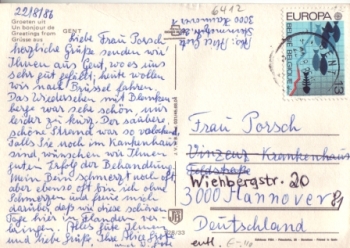 22/8/86
Groeten uit
Un bonjour de
Greetings from
Grüsse aus
GENT
Liebe Frau Porsch
herzliche Grüße senden wir
Ihnen aus Gent, wo es uns
sehr gut gefällt; heute wollen
wir nach Brüssel fahren.
Das Dreisternen mit Blanken-
berge war sehr schön nur
leider zu kurz. Der saubere
schöne Strand war so
Falls Sie noch im Krankenhaus
sind, wünschen wir Ihnen
guten Erfolg der Behandlung
mein Bein schmerzt noch oft
aber ebenso oft bin ich ohne
Schmerzen und freue mich
darüber, daß wir diese schönen
Tage hier in Flandern ver-
bringen. Alles gute Ihnen
und liebe Grüße, Ihr
6412
3000 Hannover 1
EUROPA
BELGIE-BELGIQUE
13
Frau Porsch
Vinzenz Krankenhaus
Wienbergstr. 20
3000 Hannover 81
Deutschland